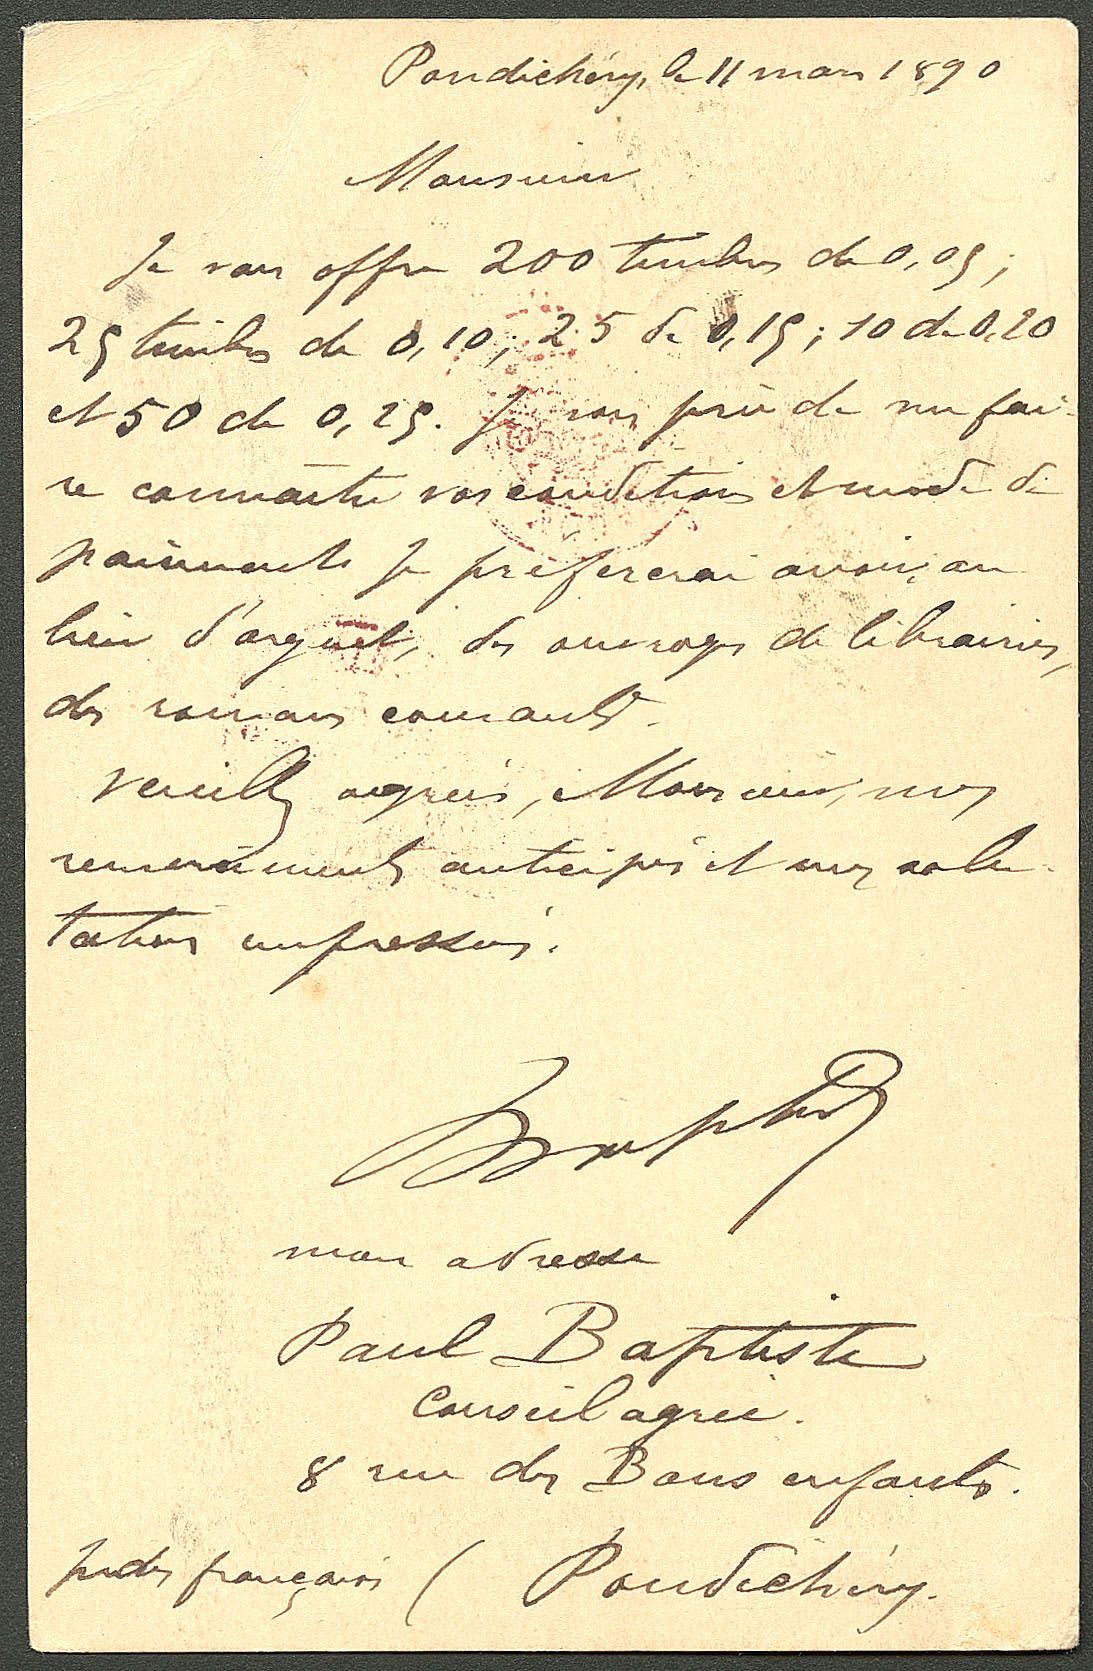 Pondichéry, le 11 mars 1890
Monsieur
Je vous offre 200 timbres de 0,05;
25 timbres de 0,10; 25 de 0,15; 10 de 0,20
et 50 de 0,25. Je vous prie de me fai-
re connaître vos conditions et mode de
paiements Je préfererai avoir, au
lieu d'argent, des ouvrages de librairies,
des romans courants.
Veuillez agréer, Monsieur, mes
remerciements anticipés et mes salu-
tations empressées.
mon adresse
Paul Baptiste
Conseil agréé.
8 rue des Bons enfants.
Indes françaises ( Pondichéry.